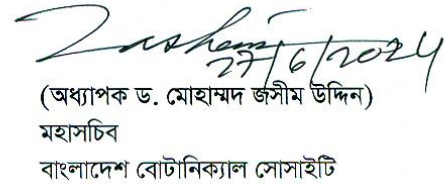 27/6/2024
(অধ্যাপক ড. মোহাম্মদ জসীম উদ্দিন)
মহাসচিব
বাংলাদেশ বোটানিক্যাল সোসাইটি